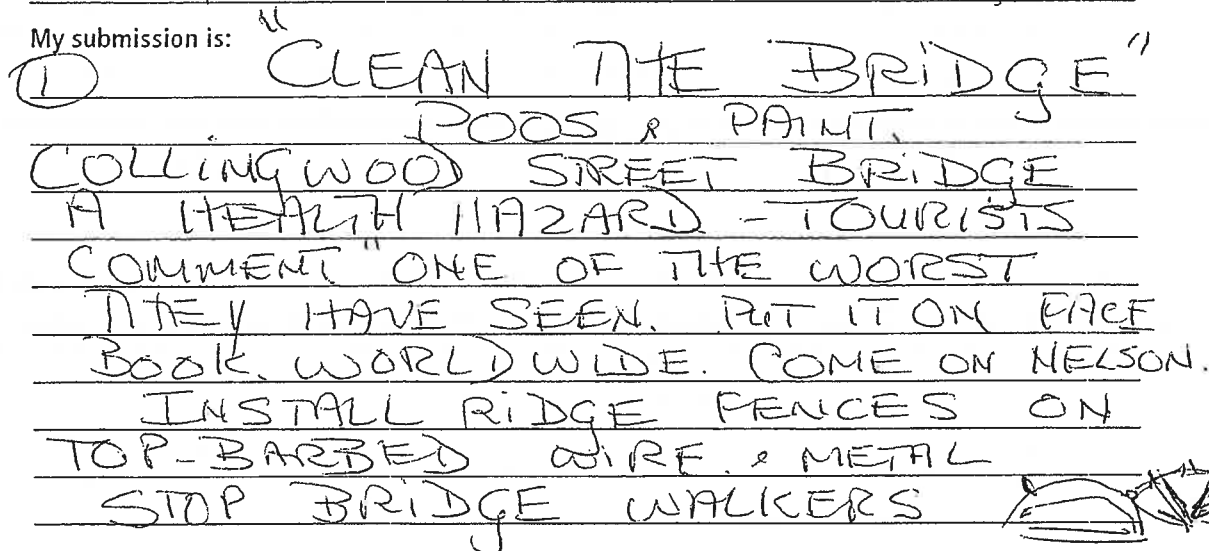 My submission is:
① "CLEAN THE BRIDGE"
POOS & PAINT.
COLLINGWOOD STREET BRIDGE
A HEALTH HAZARD - TOURISTS
COMMENT "ONE OF THE WORST
THEY HAVE SEEN. PUT IT ON FACE
BOOK. WORLD WIDE. COME ON NELSON.
INSTALL RIDGE FENCES ON
TOP - BARBED WIRE. & METAL
STOP BRIDGE WALKERS